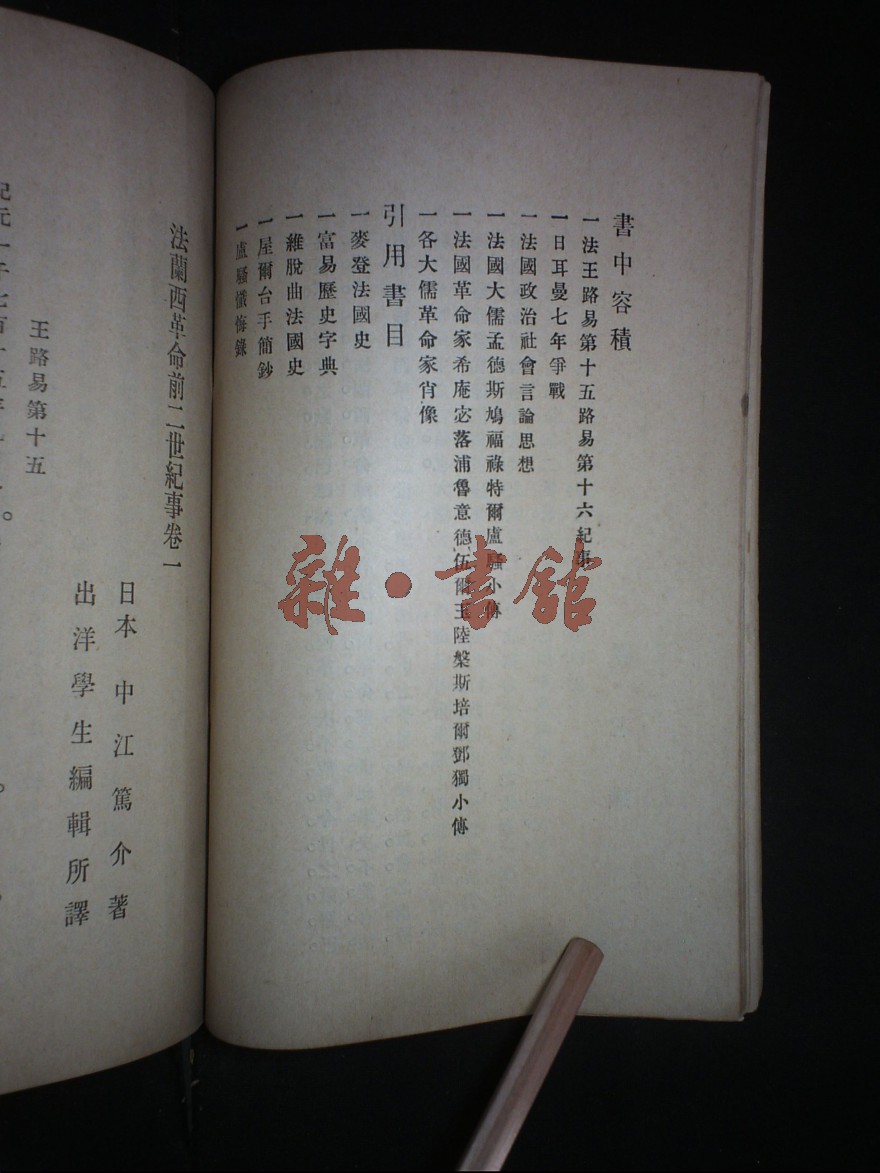 書中容積
一法王路易第十五路易第十六紀事
一日耳曼七年爭戰
一法國政治社會言論思想
一法國大儒孟德斯鳩福祿特爾盧騷小傳
一法國革命家希庵宓落浦魯意德伍爾王陸槃斯培爾鄧獨小傳
一各大儒革命家肖像
引用書目
一麥登法國史
一富易歷史字典
一維脫曲法國史
一屋爾台手簡鈔
一盧騷懺悔錄
法蘭西革命前二世紀事卷一
日本 中江篤介著
出洋學生編輯所譯
王路易第十五
紀元一千七百十五年
雜·書館